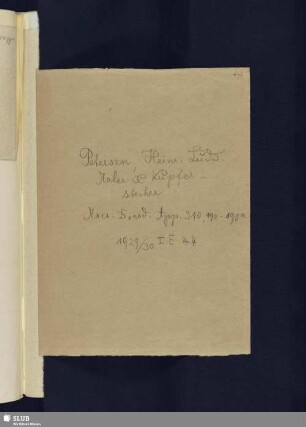 Petersen, Heinr. Ludw.
Maler & Kupfer-
stecher
Mscr. Dresd. App. 310, 190-190a
1929/30 I E 44
SLUB
Wir führen Wissen.